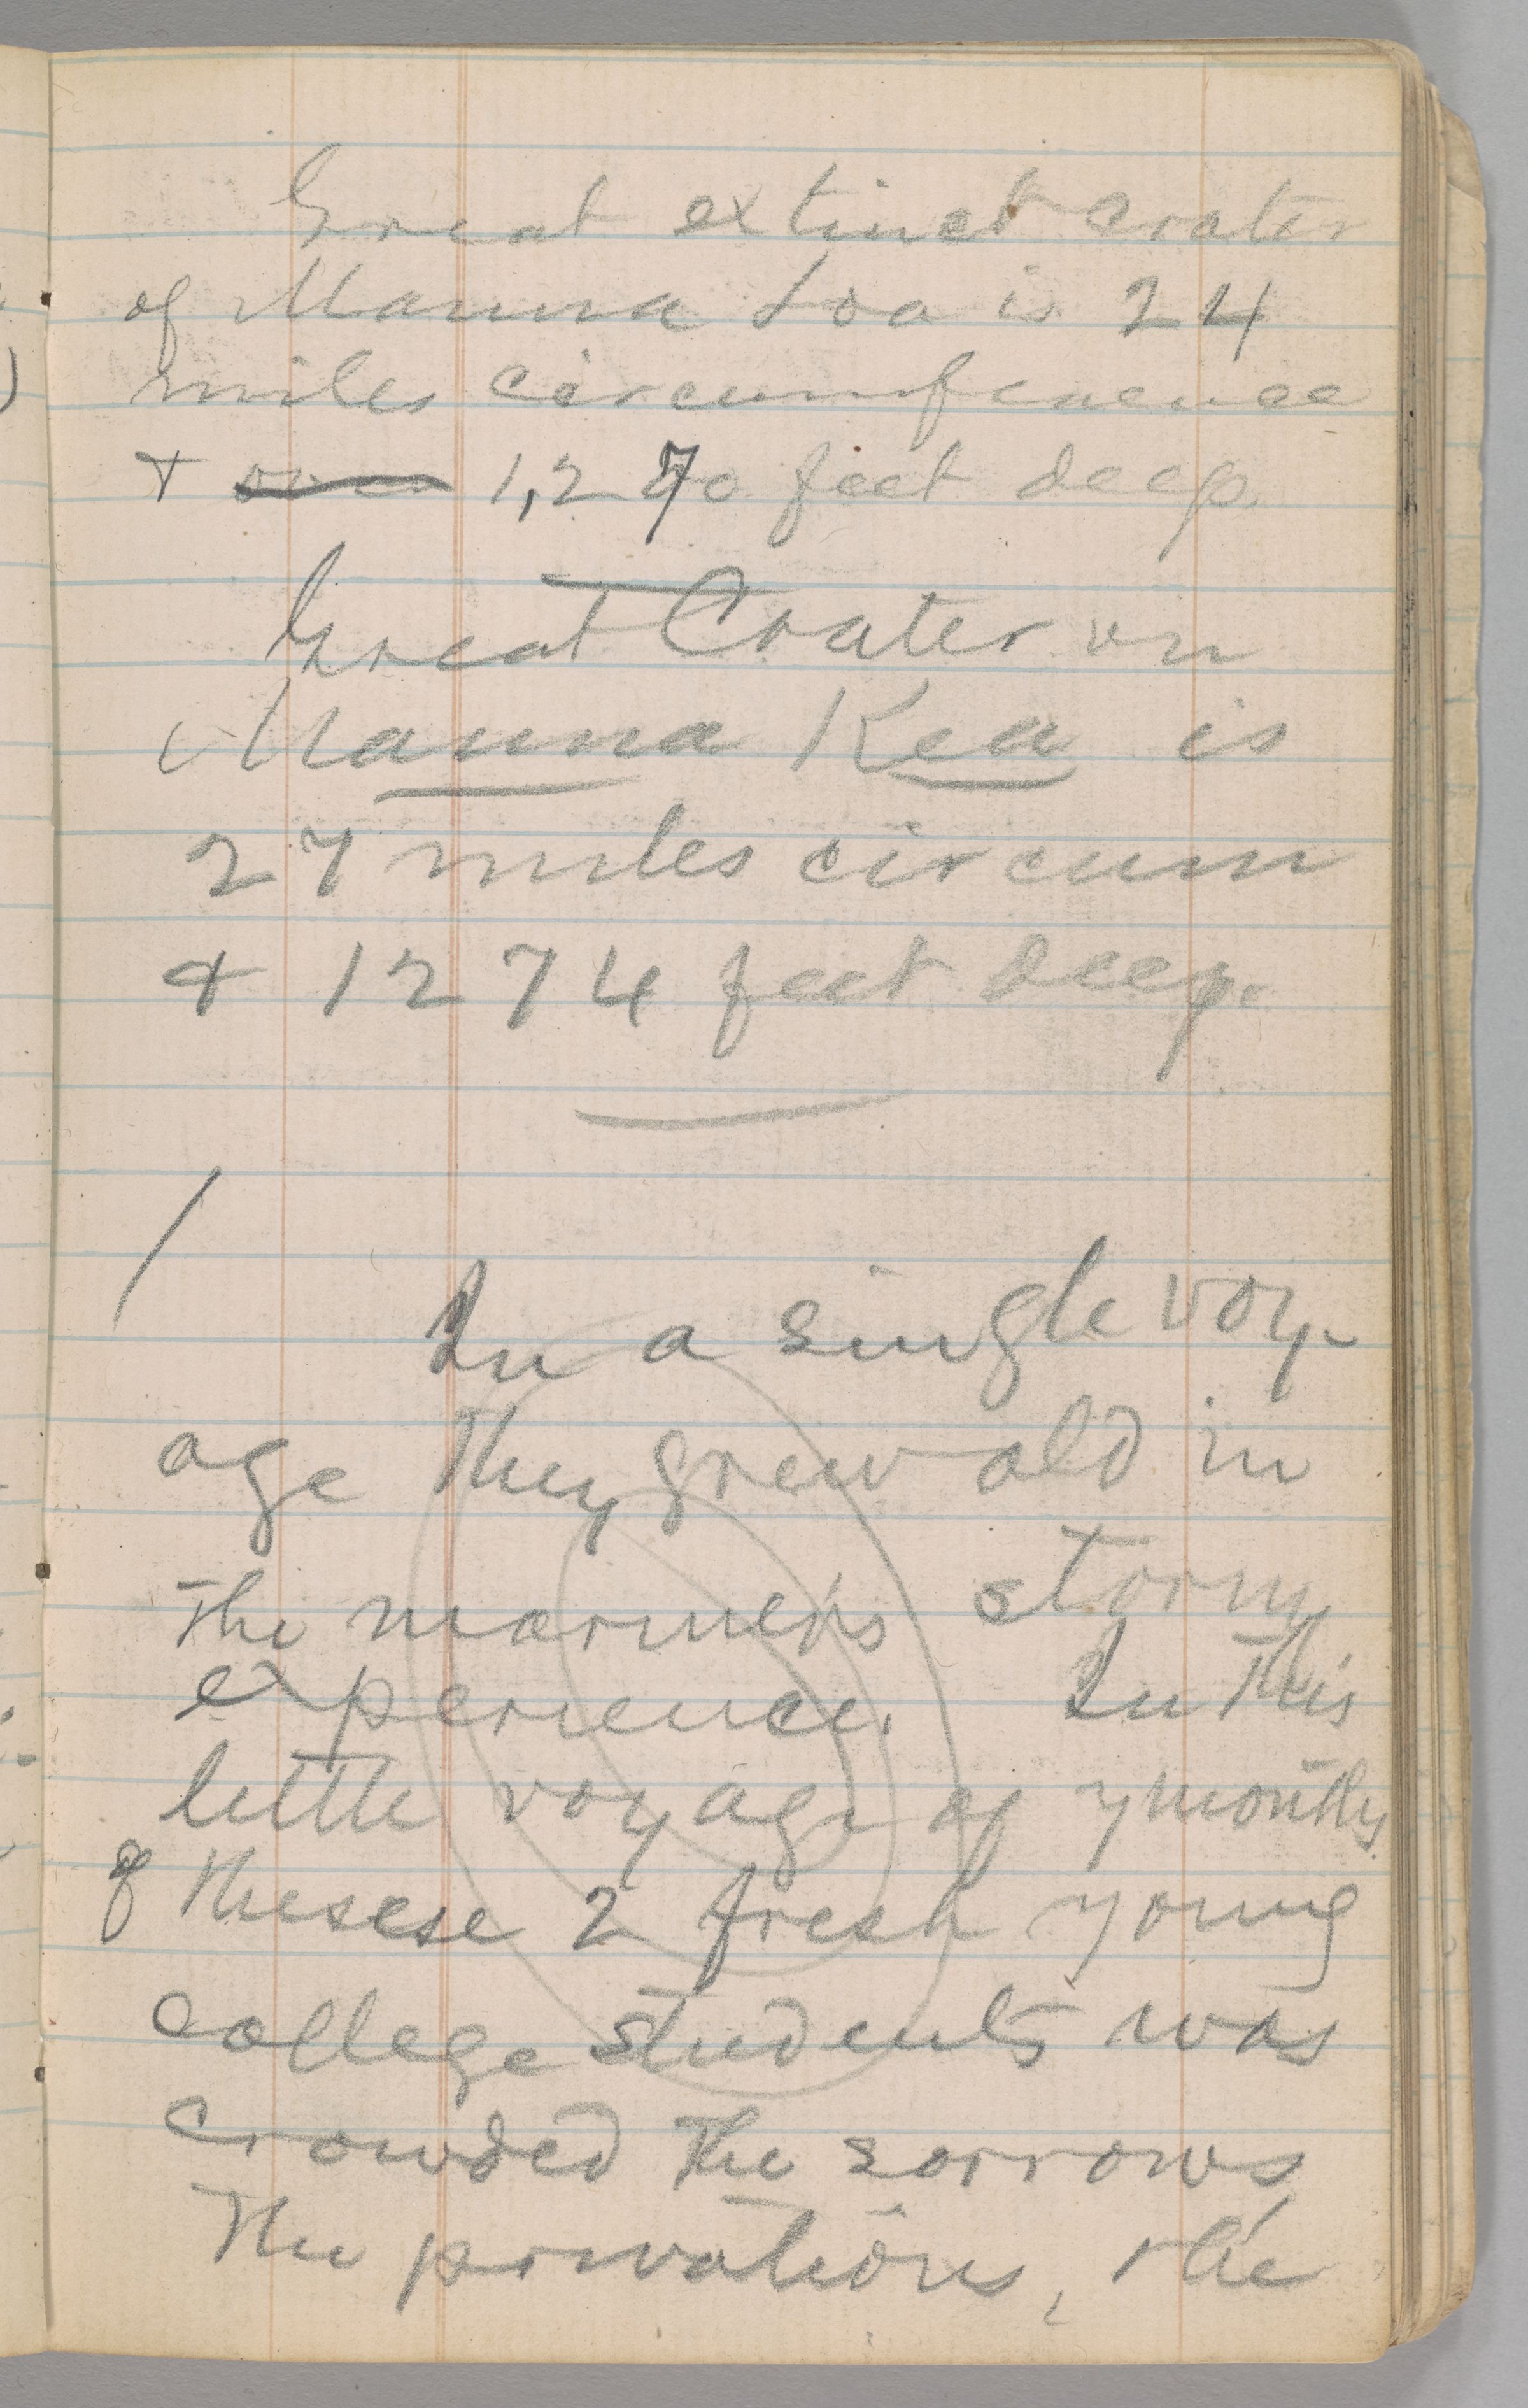 Great extinct crater
of Mauna Loa is 24
miles circumference
& over 1,270 feet deep.
Great Crater on
Mauna Kea is
27 miles circum
& 1274 feet deep.
In a single voy-
age they grew old in
the mariner's stormy
experience. In this
little voyage of 7 months
of thesese 2 fresh young
college students was
crowded the sorrows
the privations, the